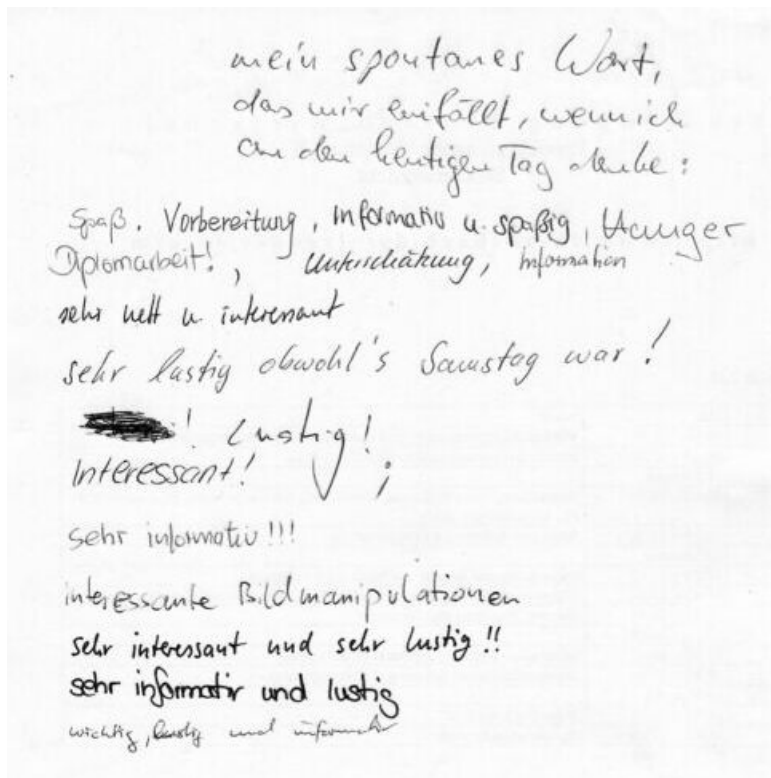 mein spontanes Wort,
das mir einfällt, wenn ich
an den heutigen Tag denke:
Spaß. Vorbereitung, informativ u. spaßig, Hunger
Diplomarbeit!, Unterschätzung, Information
sehr nett u. interessant
sehr lustig obwohl's Samstag war!
! Lustig!
Interessant! ;
sehr informativ!!!
interessante Bildmanipulationen
sehr interessant und sehr lustig!!
sehr informativ und lustig
wichtig, lustig und informativ